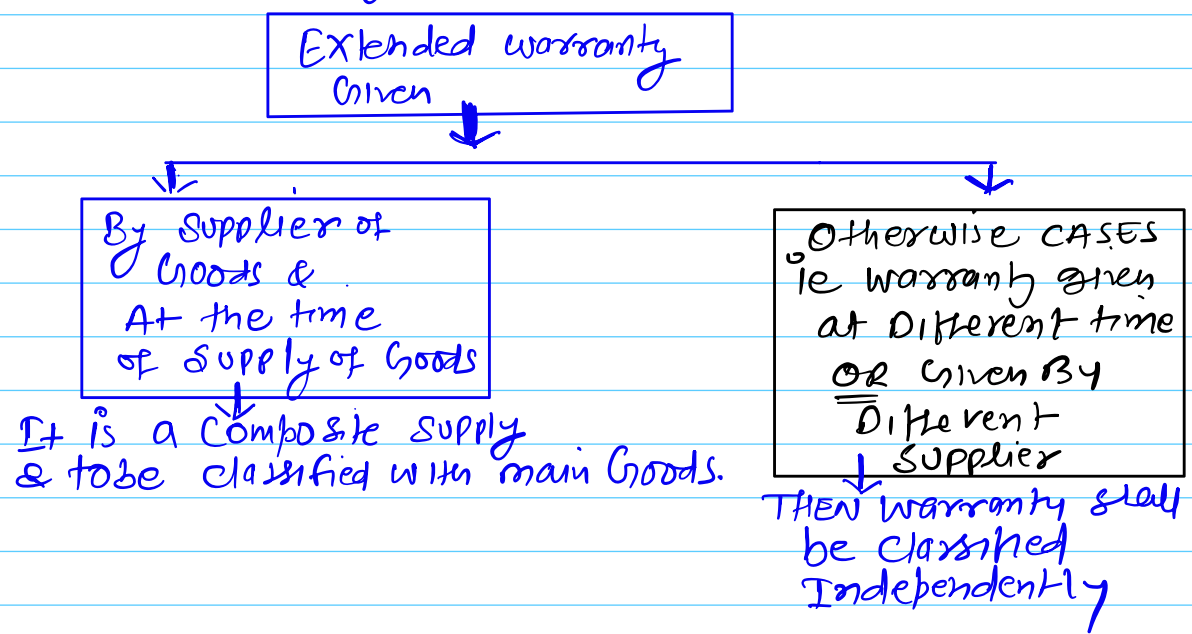 Extended warranty
Given
By Supplier of
Goods &
At the time
of supply of Goods
It is a Composite supply
& tobe classified with main Goods.
Otherwise CASES
ie warranty given
at Different time
OR Given By
Different
Supplier
THEN warranty shall
be classified
Independently